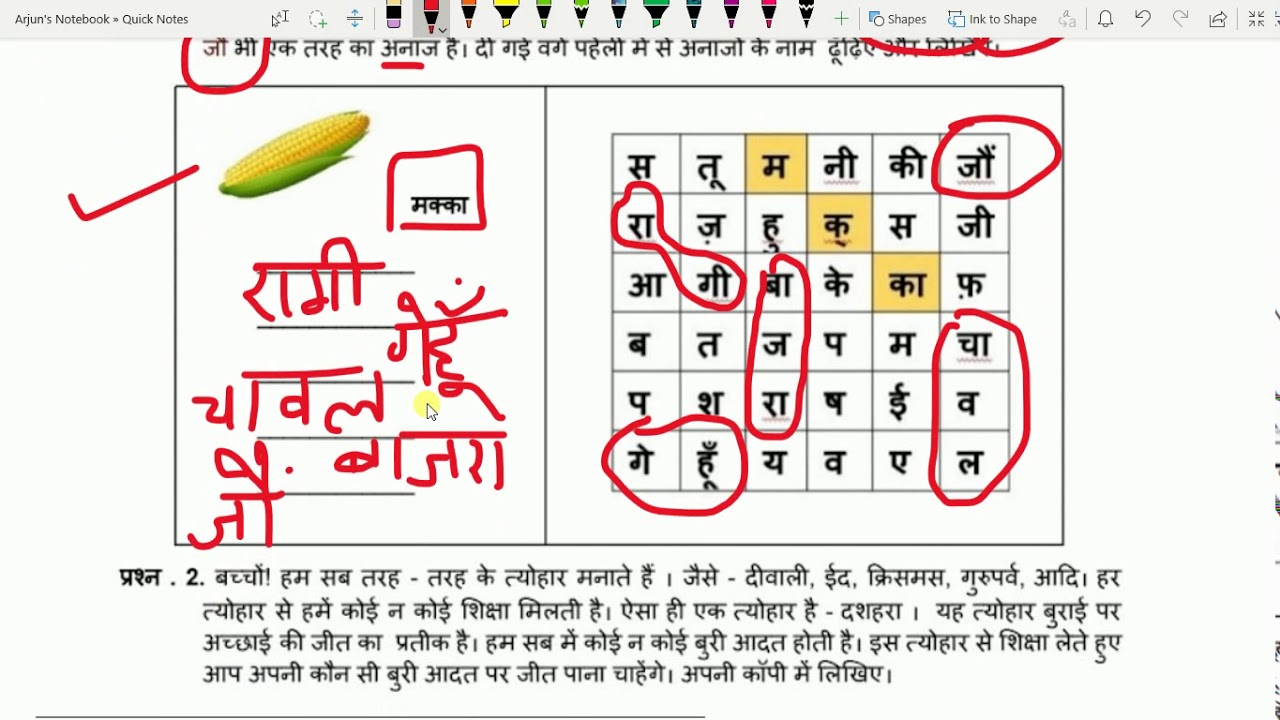 Arjun's Notebook » Quick Notes
Shapes
Ink to Shape
जौ भी एक तरह का अनाज है। दी गई वर्ग पहेली में से अनाजों के नाम ढूँढ़िए और लिखिए।
मक्का
रागी
गेहूँ
चावल
बाजरा
जौं
स तू म नी की जौं
रा ज़ हु क् स जी
आ गी बा के का फ़
ब त ज प म चा
प श रा ष ई व
गे हूँ य व ए ल
प्रश्न . 2. बच्चों! हम सब तरह - तरह के त्योहार मनाते हैं । जैसे - दीवाली, ईद, क्रिसमस, गुरुपर्व, आदि। हर
त्योहार से हमें कोई न कोई शिक्षा मिलती है। ऐसा ही एक त्योहार है - दशहरा । यह त्योहार बुराई पर
अच्छाई की जीत का प्रतीक है। हम सब में कोई न कोई बुरी आदत होती है। इस त्योहार से शिक्षा लेते हुए
आप अपनी कौन सी बुरी आदत पर जीत पाना चाहेंगे। अपनी कॉपी में लिखिए।